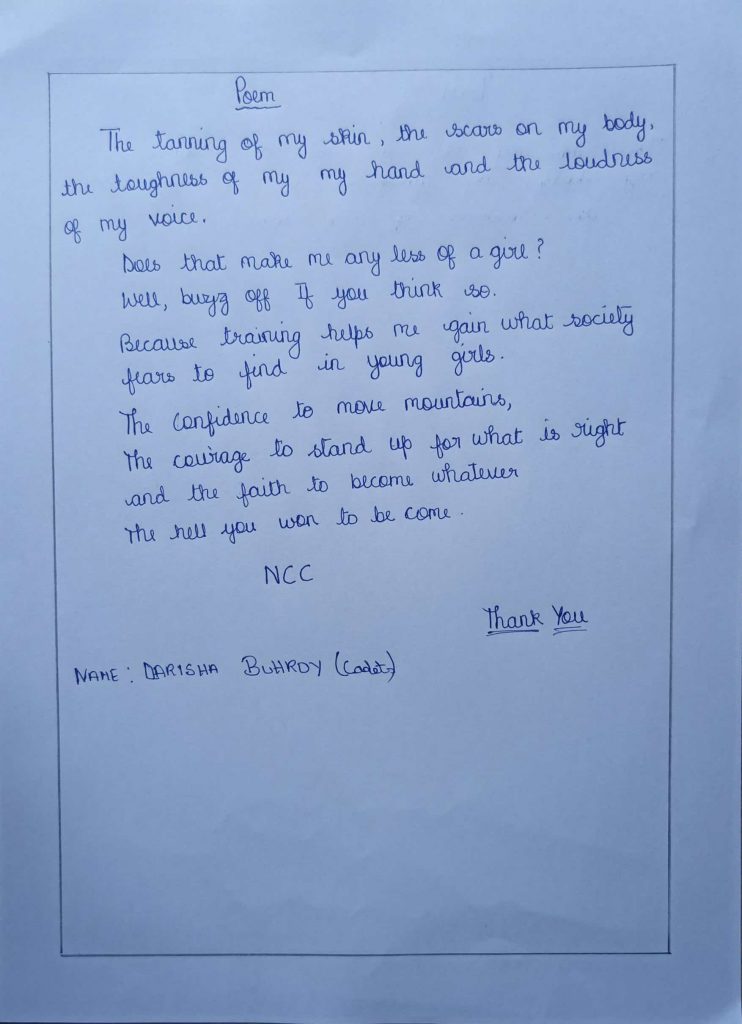 Poem
The tanning of my skin, the scars on my body,
the toughness of my my hand and the loudness
of my voice.
Does that make me any less of a girl?
Well, buzzg off If you think so.
Because training helps me gain what society
fears to find in young girls.
The confidence to move mountains,
The courage to stand up for what is right
and the faith to become whatever
The hell you won to be come.
NCC
Thank You
NAME: DARISHA BUHROY (Cadet)